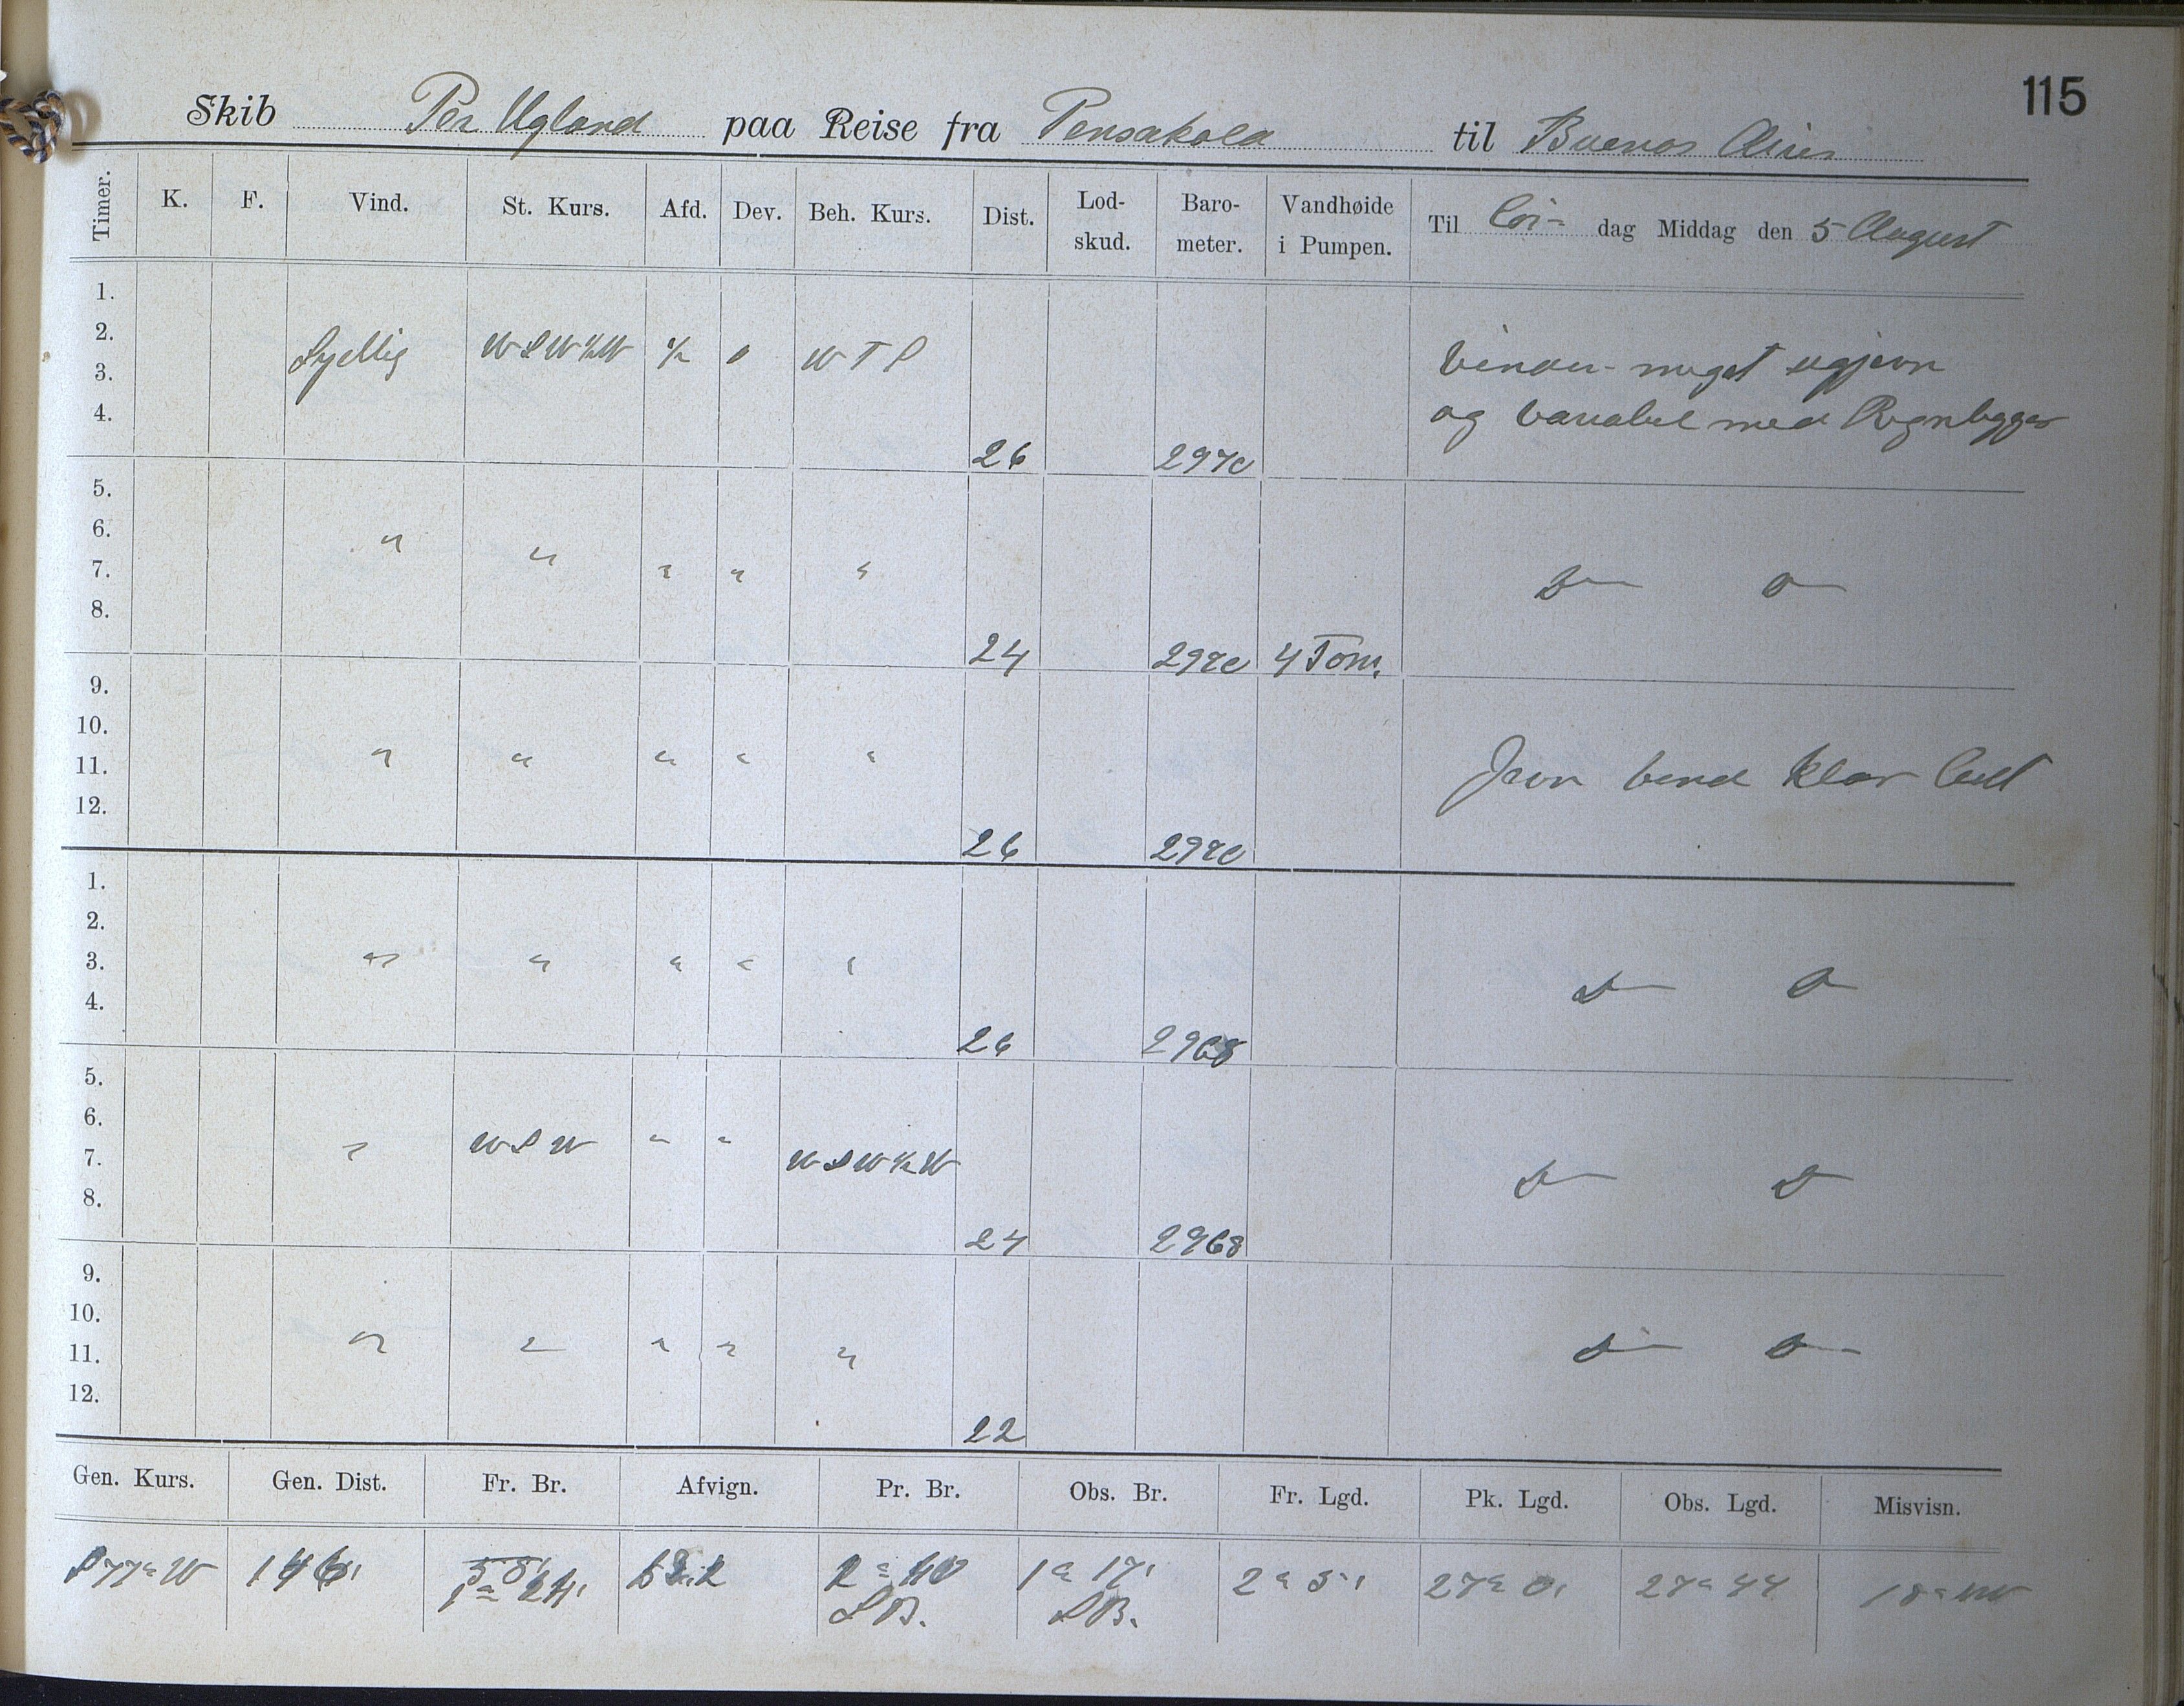 115
Skib Per Ugland paa Reise fra Pensakola til Buenos Aires
Timer. K. F. Vind. St. Kurs. Afd. Dev. Beh. Kurs. Dist. Lod-skud. Baro-meter. Vandhøide i Pumpen. Til Lör- dag Middag den 5 August
1.
2. Sydlig WSW½W ½ 0 WTS Vinden meget ugjevn
3.
4. og variabel med Regnbyger
26
5.
6. " "
7. " " " D— D—
8.
24 4 Tom.
9.
10.
11. " " " " " Jevn Vind klar Luft
12.
26
1.
2.
3. " " " " "
4. D— D—
26 2968
5.
6.
7. " WSW " " WSW½W D— D—
8.
24 2968
9.
10.
11. " " " " " D— D—
12.
22
Gen. Kurs. Gen. Dist. Fr. Br. Afvign. Pr. Br. Obs. Br. Fr. Lgd. Pk. Lgd. Obs. Lgd. Misvisn.
S77°W 146' 2°40 1°17' 2°5' 27°0' 27°44
1°24' SB. SB.